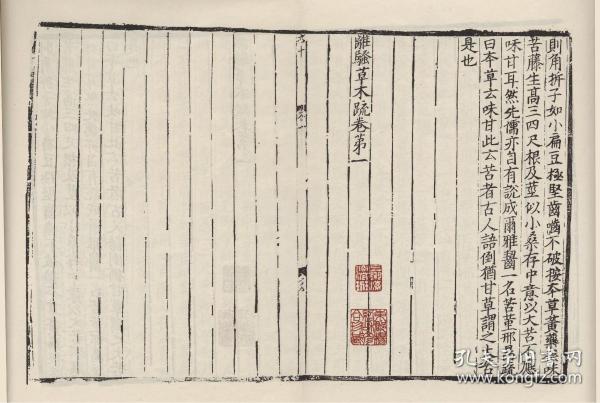 則角折子如小扁豆極堅齒嚙不破按本草黃藥云味
苦藤生高三四尺根及莖似小桑存中意以大苦不應
味甘耳然先儒亦自有說成爾雅齧一名苦堇邢昺疏
曰本草云味甘此云苦者古人語倒猶甘草謂之大苦
是也
離騷草木疏卷第一
孔夫子旧书网
www.kongfz.com